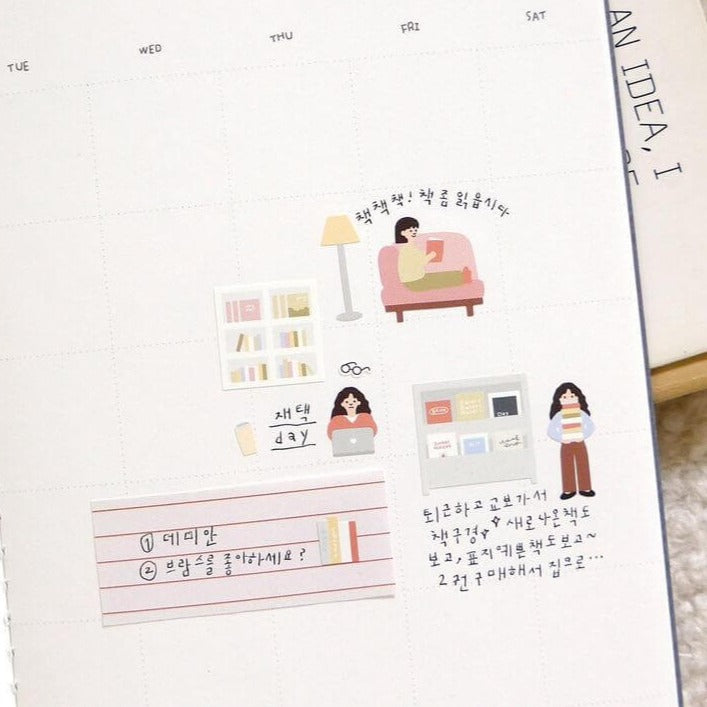 TUE WED THU FRI SAT
AN IDEA, I
책책책! 책 좀 읽읍시다
재택
day
① 데미안
② 브람스를 좋아하세요?
퇴근하고 교보가서
책구경 새로나온책도
보고, 표지예쁜책도보고~
2권구매해서 집으로...